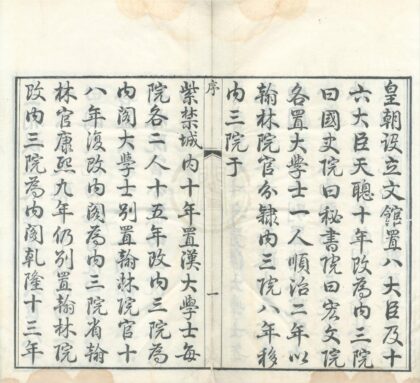 皇朝設立文館置八大臣及十
六大臣天聰十年改為内三院
曰國史院曰秘書院曰宏文院
各置大學士一人順治二年以
翰林院官分隸内三院八年移
内三院于
序
一
紫禁城内十年置漢大學士每
院各二人十五年改内三院為
内閣大學士別置翰林院官十
八年復改内閣為内三院省翰
林官康熙九年仍別置翰林院
改内三院為内閣乾隆十三年